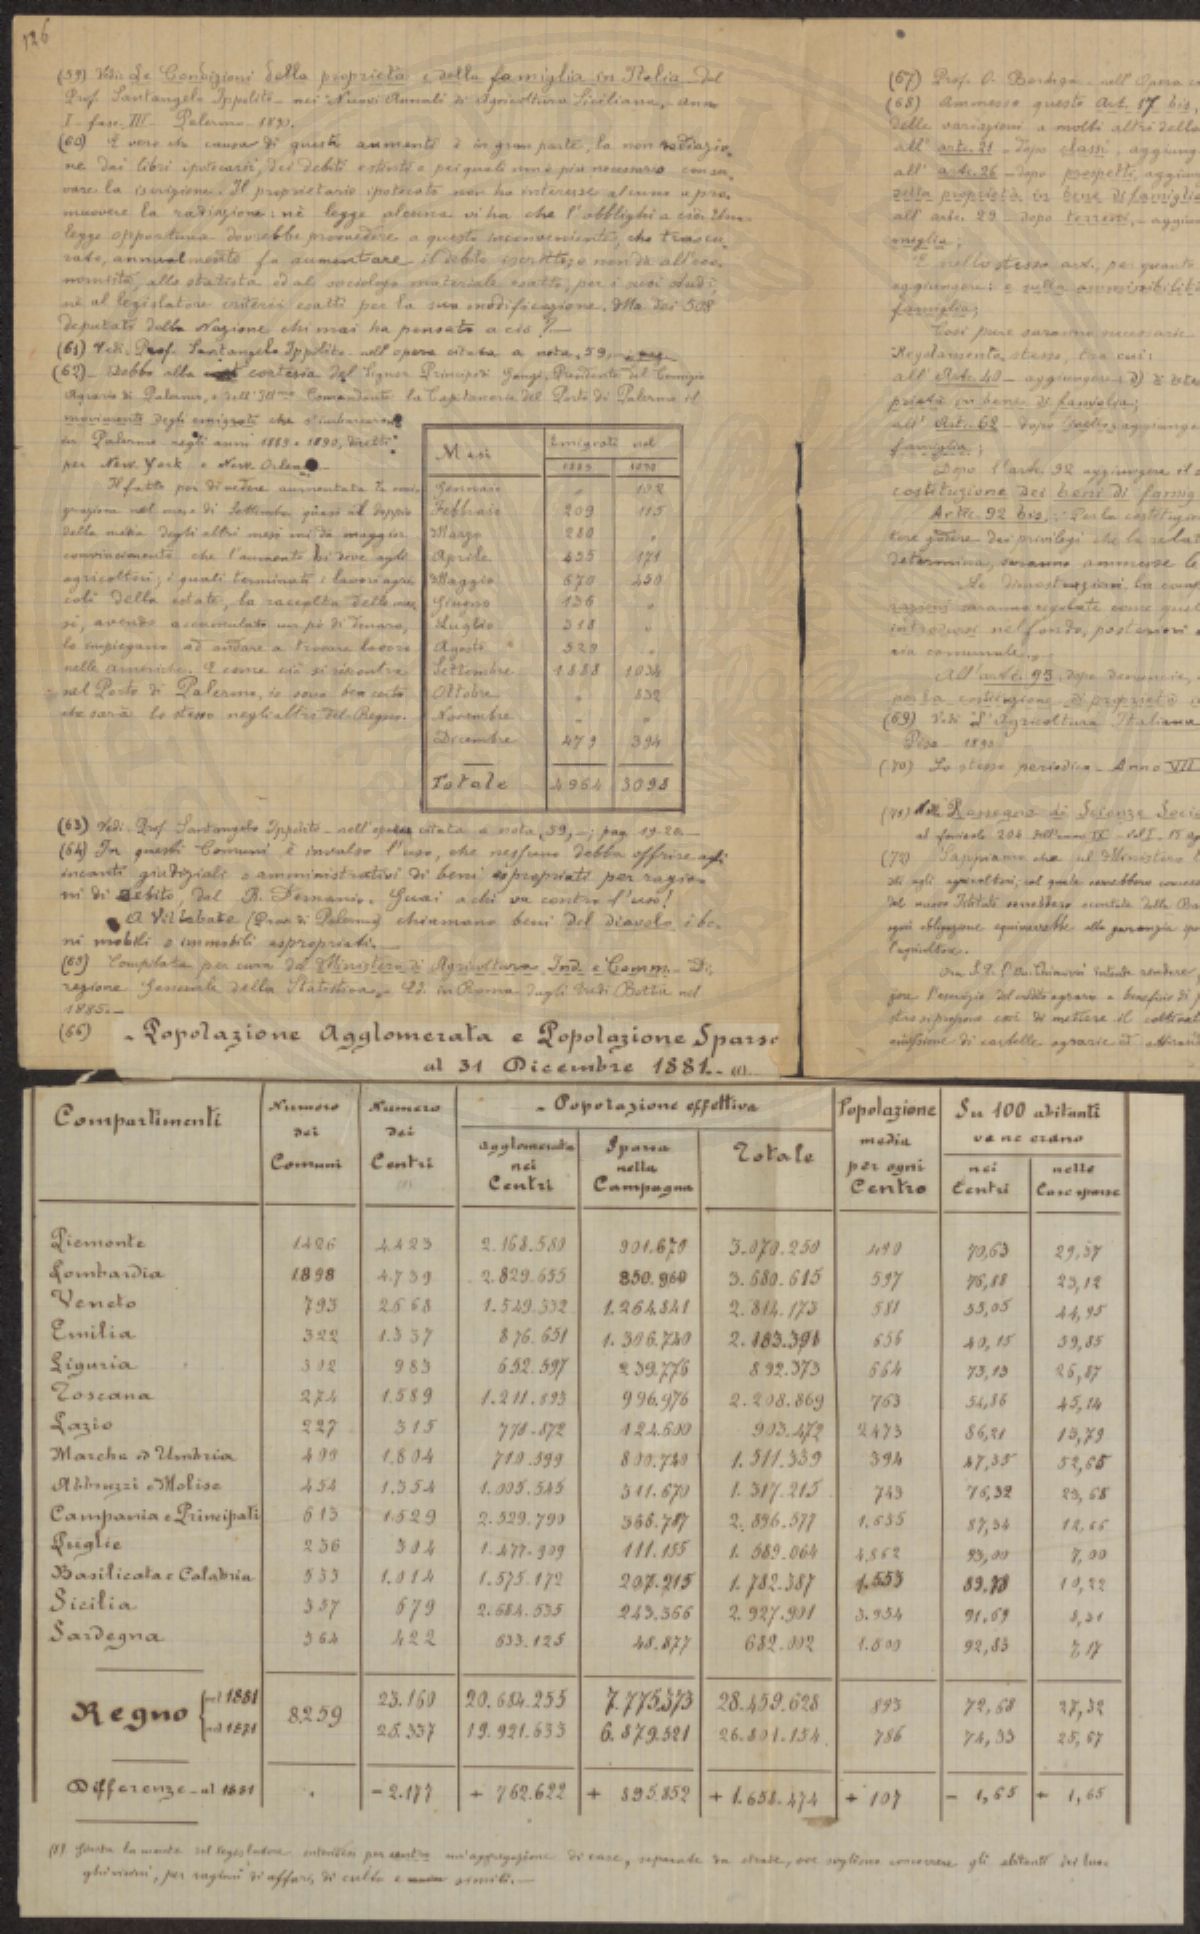 126
(59) Vedi: Le Condizioni della proprietà e della famiglia in Italia del
Prof. Santangelo Ippolito - nei Nuovi Annali di Agricoltura Siciliana, anno
I - fasc. III - Palermo - 1890.
(60) È vero che causa di questo aumento è in gran parte, la non radiazio-
ne dai libri ipotecari, dei debiti estinti e pei quali non è più necessario conser-
vare la iscrizione. Il proprietario ipotecato non ha interesse alcuno a pro-
muovere la radiazione: nè legge alcuna vi ha che l'obblighi a ciò. Una
legge opportuna dovrebbe provvedere a questo inconveniente, che trascu-
rato, annualmente fa aumentare il debito iscritto, e non dà all'eco-
nomista, allo statista ed al sociologo materiale esatto, per i suoi studi
nè al legislatore criterii esatti per la sua modificazione. Ma dei 508
deputati della Nazione chi mai ha pensato a ciò?
(61) Vedi. Prof. Santangelo Ippolito - nell'opera citata a nota, 59,
(62) - Debbo alla cortesia del Signor Principe di Gangi, Presidente del Comizio
Agrario di Palermo, e dell'Ill.mo Comandante la Capitaneria del Porto di Palermo il
movimento degli emigrati che s'imbarcarono
in Palermo negli anni 1889 e 1890, diretti
per New York e New Orleans
Il fatto poi di vedere aumentata la emi-
grazione nel mese di Settembre quasi al doppio
della media degli altri mesi mi dà maggior
convincimento che l'aumento si deve agli
agricoltori; i quali terminati i lavori agri-
coli della estate, la raccolta delle mes-
si, avendo accumulato un pò di denaro,
lo impiegano ad andare a trovare lavoro
nelle americhe. E come ciò si riscontra
nel Porto di Palermo, io sono ben certo
che sarà lo stesso negli altri del Regno.
Mesi Emigrati nel
1889 1890
Gennaio " 132
Febbraio 209 115
Marzo 280 "
Aprile 455 171
Maggio 670 450
Giugno 136 "
Luglio 318 "
Agosto 529 "
Settembre 1888 1034
Ottobre " 832
Novembre " "
Dicembre 479 394
Totale 4964 3098
(63) Vedi. Prof. Santangelo Ippolito - nell'opera citata a nota, 59, -; pag. 19-20.
(64) In questi Comuni è invalso l'uso, che nessuno debba offrire agli
incanti giudiziali o amministrativi di beni espropriati per ragio-
ni di debito, dal R. Demanio. Guai a chi va contro l'uso!
A Villabate (Prov. di Palermo) chiamano beni del diavolo i be-
ni mobili o immobili espropriati.
(65) Compilata per cura del Ministero di Agricoltura Ind. e Comm. - Di-
rezione Generale della Statistica, - Ed. in Roma dagli Eredi Botta nel
1885. -
(66) - Popolazione Agglomerata e Popolazione Sparsa
al 31 Dicembre 1881.. (1)
(67) Prof. O. Bordiga - nell'Opera
(68) Ammesso questo Art. 17 bis,
delle variazioni a molti altri della
all' art. 21 - dopo classi, aggiung
all' art. 26 - dopo prospetti, aggiun
della proprietà in bene di famiglia
all' art. 29 - dopo terreni, - aggiun
miglia;
E nello stesso art., per quanto
aggiungere: e sulla ammissibilità
famiglia;
Così pure saranno necessarie
Regolamento stesso, tra cui:
all' Art. 40 - aggiungere: d)
prietà in bene di famiglia;
all' Art. 62 - dopo aggiunge
famiglia;
Dopo l'art. 92 aggiungere il
costituzione dei beni di famig
Art. 92 bis, : Per la costituzion
tere godere dei privilegi che la
determina, saranno ammesse le
Le dimostrazioni
razioni saranno regolate come quel
introdursi nel fondo, posteriori
ria comunale.
All'art. 93 dopo denuncie,
per la costituzione di proprietà
(69) Vedi L'Agricoltura Italiana
Pisa - 1890
(70) Lo stesso periodico - Anno VII
(71) Nella Rassegna di Scienze Socia
al fascicolo 204 dell'anno IX - Vol. I - 15
(72) Sappiamo che il Ministero
agli agricoltori, col quale
del nuovo Istituto verrebbero scontate dalla Ba
ogni obbligazione equivarrebbe alla garanzia
l'agricoltore.
Ora S.E. l'On. Chimirri intende rendere
l'esercizio del credito agrario a beneficio di
si propone così di mettere il coltivat
emissione di cartelle agrarie ed attirando
Compartimenti Numero dei Comuni Numero dei Centri (1) - Popolazione effettiva Popolazione media per ogni Centro Su 100 abitanti ve ne erano
agglomerata nei Centri Sparsa nella Campagna Totale nei Centri nelle Case sparse
Piemonte 1426 4.423 2.168.580 901.670 3.070.250 490 70,63 29,37
Lombardia 1898 4.739 2.829.655 850.960 3.680.615 597 76,88 23,12
Veneto 793 2668 1.549.332 1.264.841 2.814.173 581 55,05 44,95
Emilia 322 1.337 876.651 1.306.740 2.183.391 656 40,15 59,85
Liguria 302 983 652.597 239.776 892.373 664 73,13 26,87
Toscana 274 1.589 1.211.893 996.976 2.208.869 763 54,86 45,14
Lazio 227 315 778.872 124.600 903.472 2473 86,21 13,79
Marche ed Umbria 499 1.804 710.599 800.740 1.511.339 394 47,35 52,65
Abbruzzi e Molise 454 1.354 1.005.545 311.670 1.317.215 743 76,32 23,68
Campania e Principati 613 1.529 2.529.790 366.787 2.896.577 1.655 87,34 12,66
Puglie 236 304 1.477.909 111.155 1.589.064 4.862 93,00 7,00
Basilicata e Calabria 533 1.014 1.575.172 207.215 1.782.387 1.553 89,78 10,22
Sicilia 357 679 2.684.535 243.366 2.927.901 3.954 91,69 8,31
Sardegna 364 422 633.125 48.877 682.002 1.500 92,83 7,17
Regno { nel 1881 8259 23.160 20.684.255 7.775.373 28.459.628 893 72,68 27,32
nel 1871 25.337 19.921.633 6.879.521 26.801.154 786 74,33 25,67
Differenze - al 1881 . - 2.177 + 762.622 + 895.852 + 1.658.474 + 107 - 1,65 + 1,65
(1) Giusta la mente del legislatore intendesi per centro un'aggregazione di case, separate da strade, ove sogliono concorrere gli abitanti dei luo-
ghi vicini, per ragioni di affari, di culto e simili. -